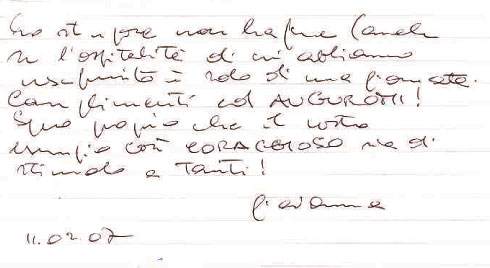 Lo stupore non ha fine (anche
se l'ospitalità di cui abbiamo
usufruito è solo di una giornata.
Complimenti ed AUGURONI!
Spero proprio che il vostro
esempio così CORAGGIOSO sia di
stimolo a tanti!
Giovanna
11.02.07